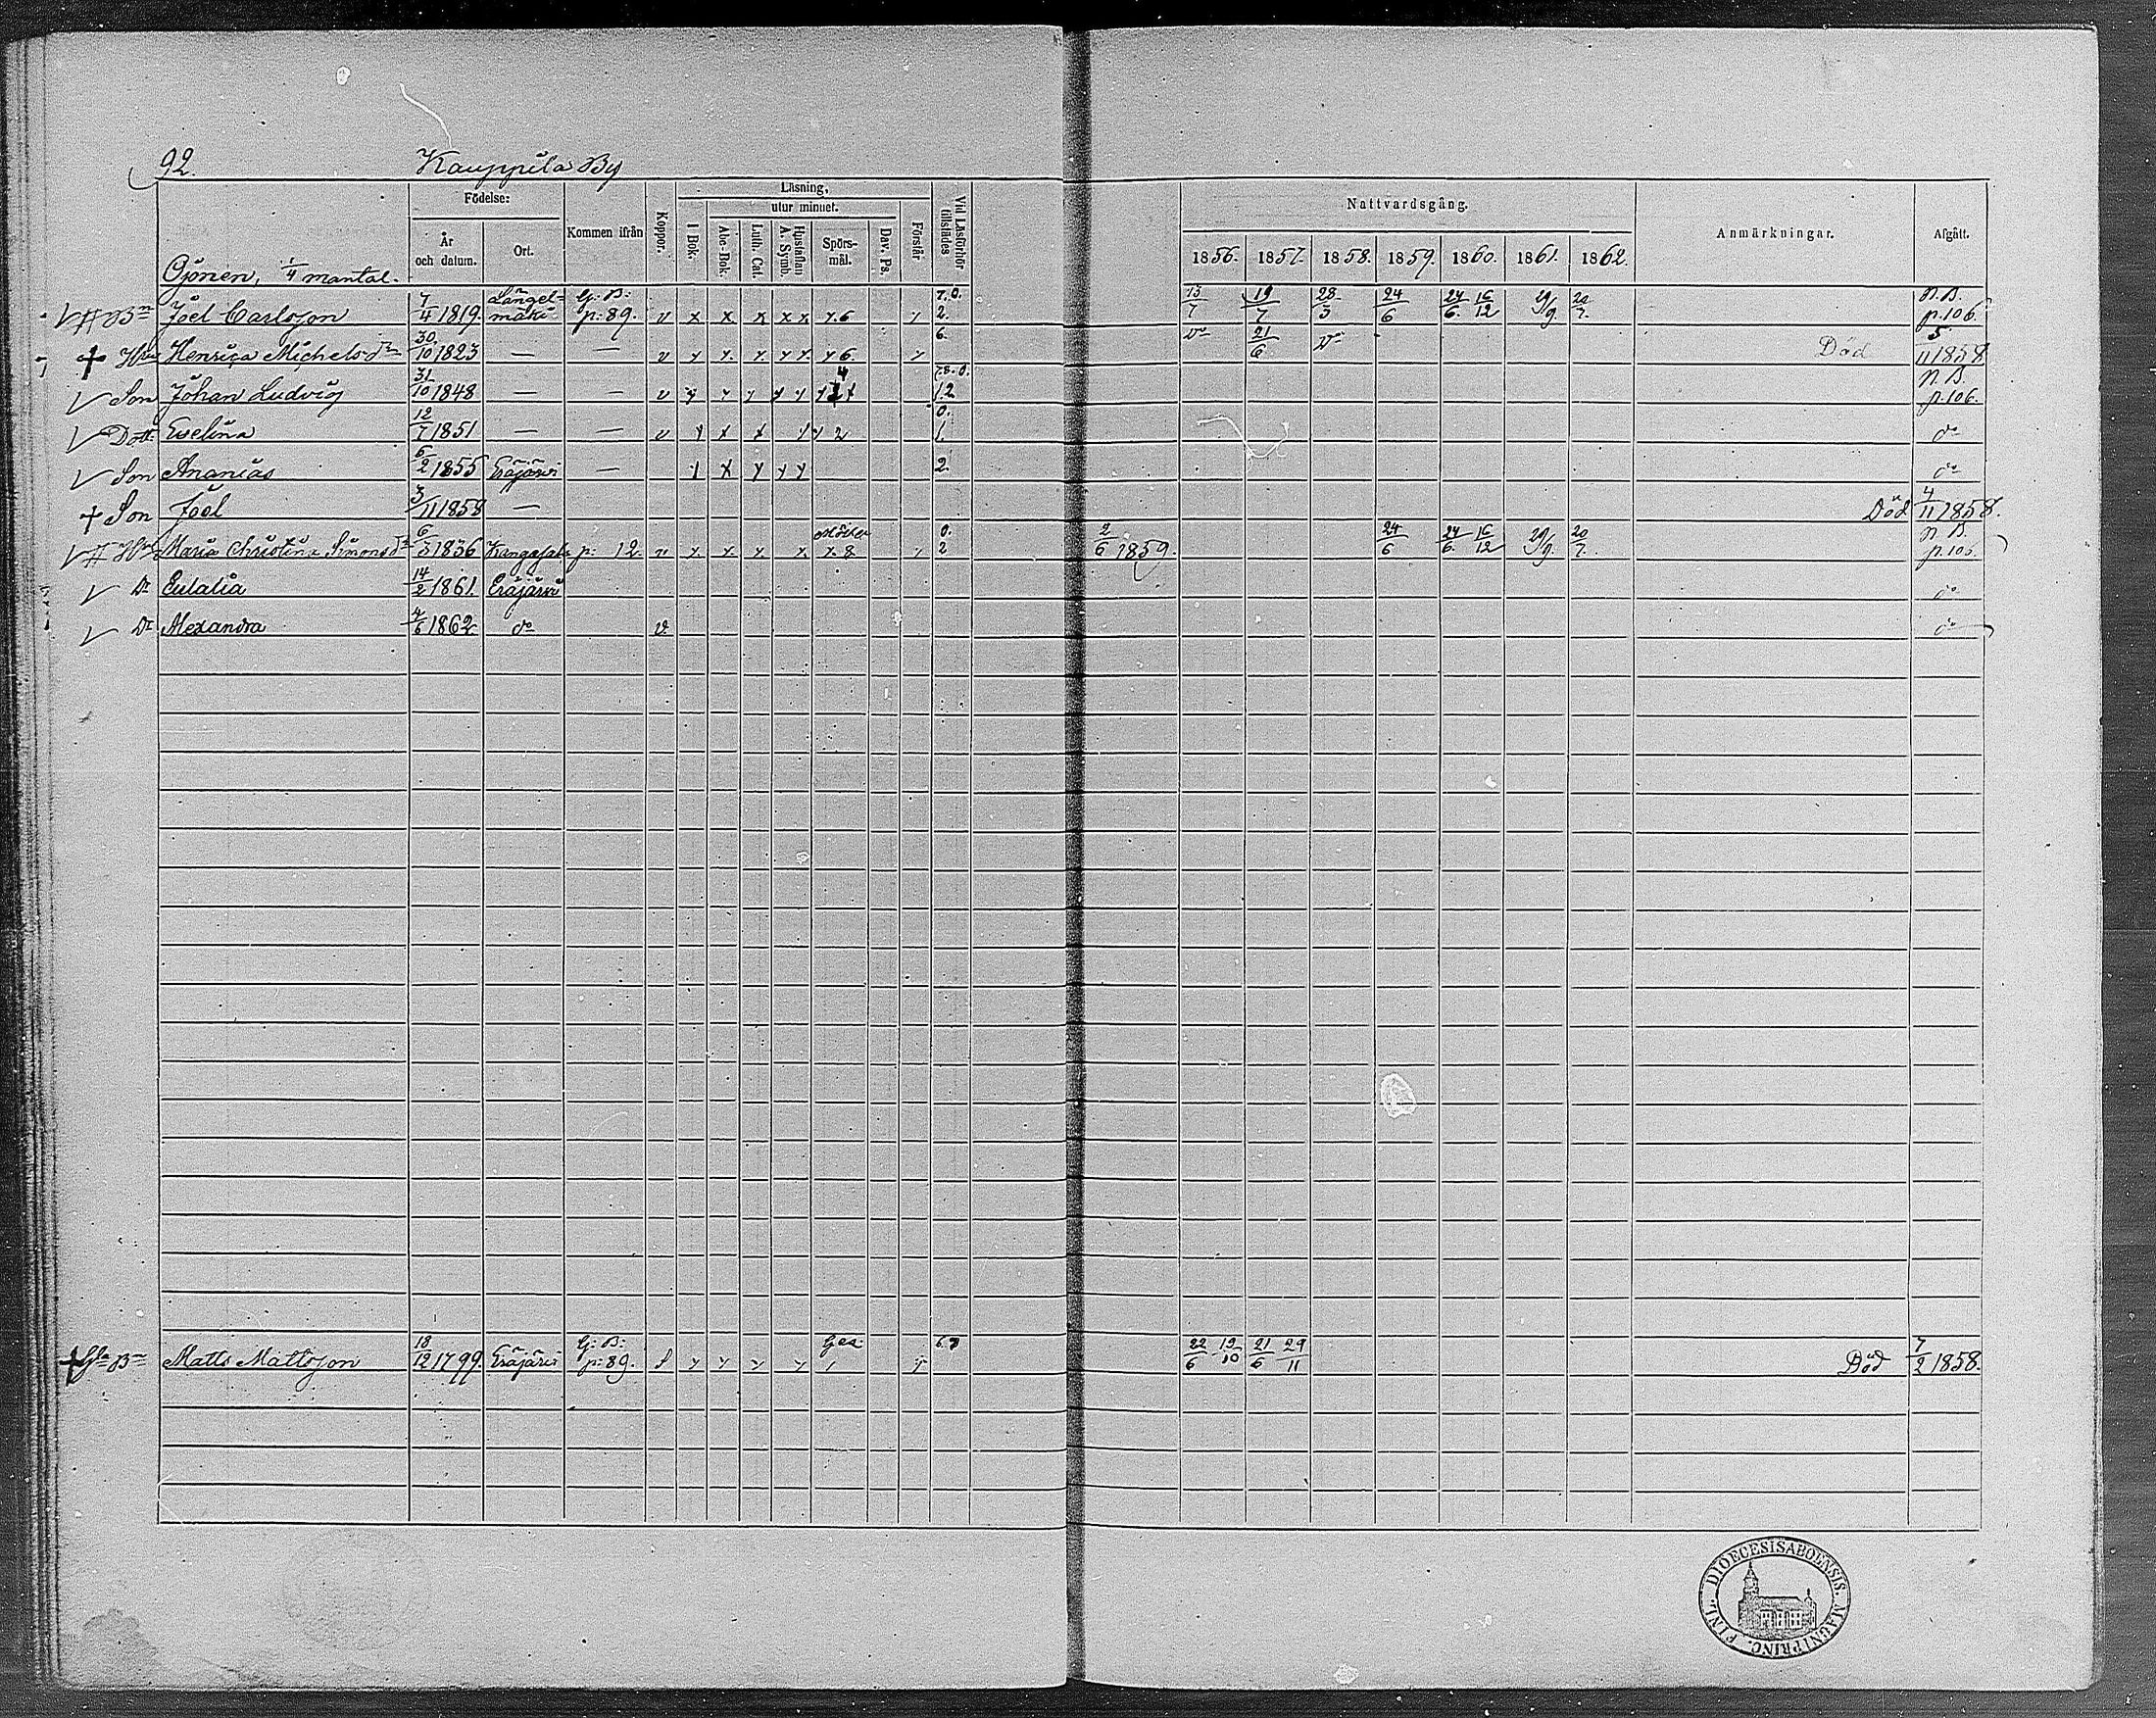 92. Kauppila By
Födelse:
Läsning,
utur minnet.
År och datum.
Ort.
Kommen ifrån
Koppor.
I Bok.
Abc-Bok.
Luth. Cat.
Hustaflan A. Symb.
Spörs-mål.
Dav. Ps.
Förstår
Vid Läsförhör tillstädes
Nattvardsgång.
1856. 1857. 1858. 1859. 1860. 1861. 1862.
Anmärkningar.
Afgått.
Ojönen, 1/4 mantal.
Bn Joel Carlsson 7/4 1819. Längelmäki G: B: p: 89. v x x x x x x. 6 7. 0. 2. 13/7 19/7 28/3 24/6 24/6 16/12 29/9 20/7. N. B. p. 106.
+ Hu Henrica Michelsdr 30/10 1823 — — v 6. 6. 21/6 Död 5/11 1858
Son Johan Ludvig 31/10 1848 — — v 4 N. B. p. 106.
Dott. Evelina 12/7 1851 — — v 2 0. 1. do
Son Ananias 6/2 1855 Eräjärvi — 2. do
+ Son Joel 3/11 1858 — Död 4/11 1858.
Maria Christina Simonsdr 6/3 1836 Kangasala p: 12. x. 8 0. 2 2/6 1859. 24/6 24/6 16/12 29/9. 20/7. N. B. p. 106.
Dr Eulalia 14/2 1861. Eräjärvi do
Dr Alexandra 4/6 1862. do v. do
Matts Mattsson 18/12 1799. Eräjärvi G: B: p: 89. 6. 7 22/6 19/10 21/6 29/11 Död 7/2 1858.
DIOECESIS ABOENSIS. MAGNI PRINC. FINL.